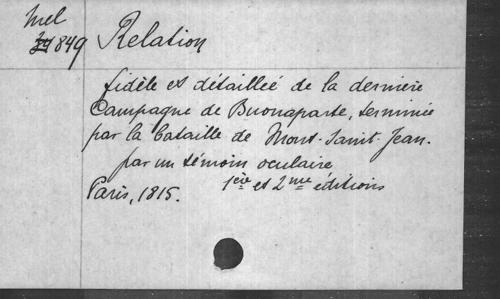 Mel
849 Relation
fidèle et détaillée de la dernière
Campagne de Buonaparte, terminée
par la bataille de Mont-Saint-Jean.
par un témoin oculaire
Paris, 1815. 1ère et 2me éditions